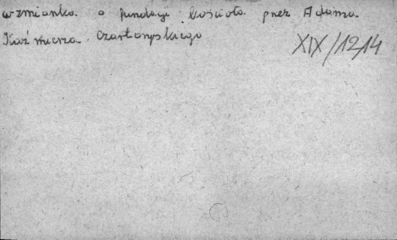 wzmianka o fundacji kościoła przez Adama
Kaźmierza Czartoryskiego
XIX/1214